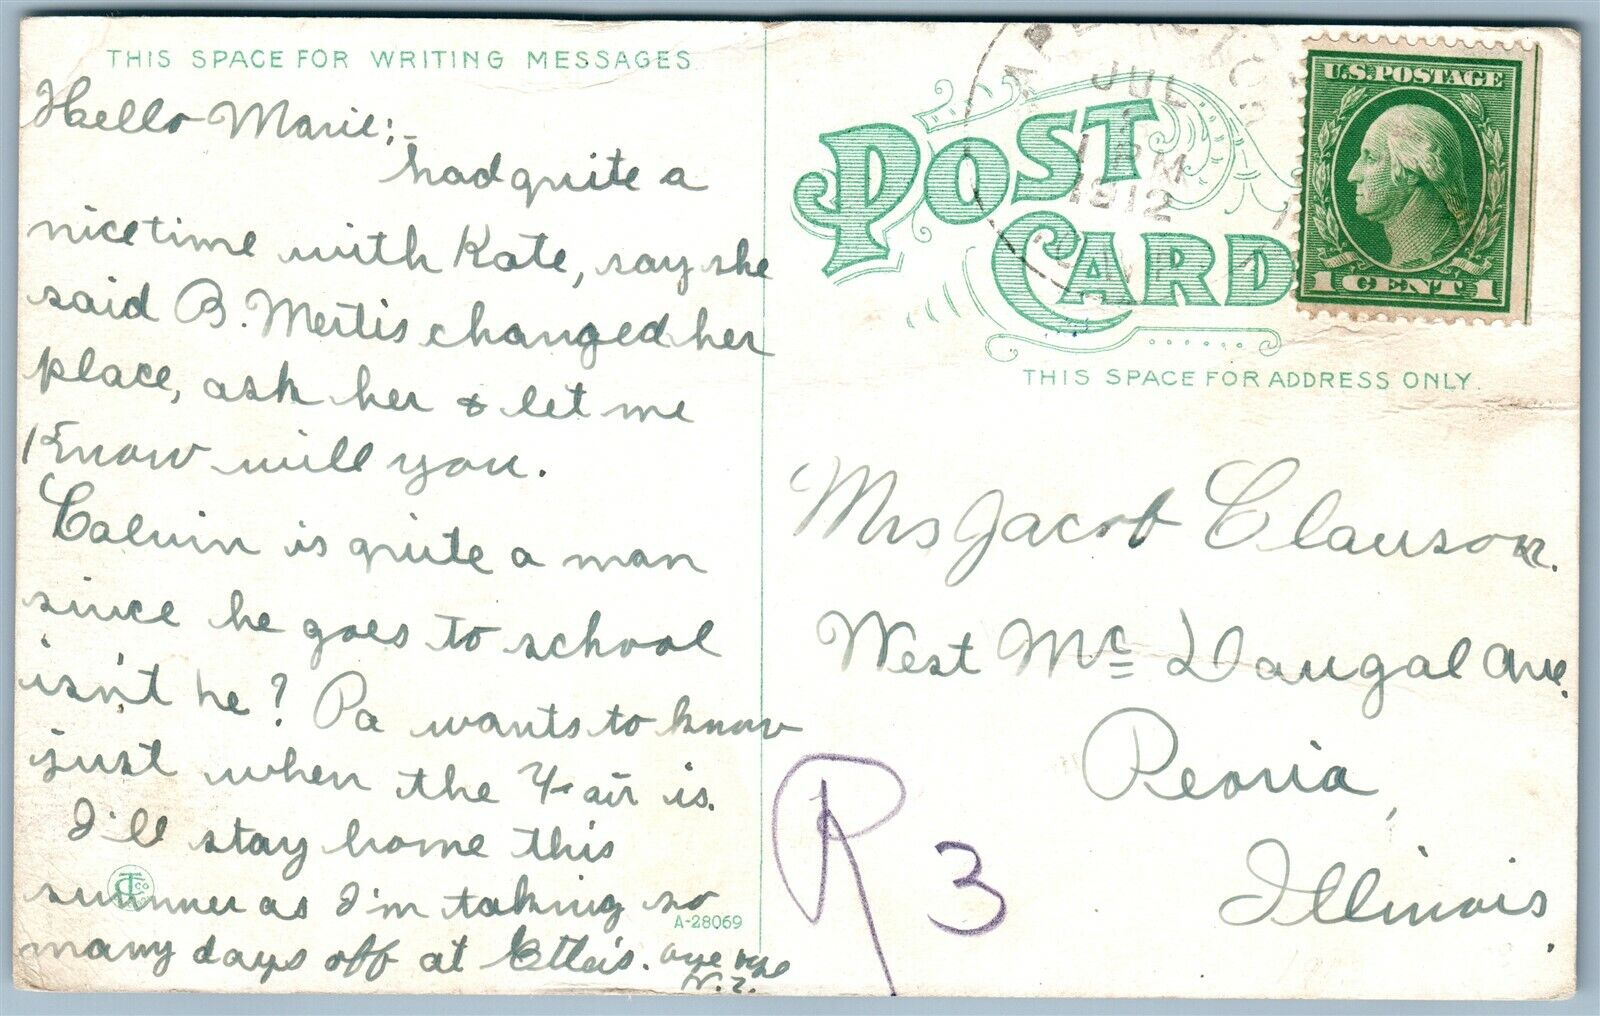 THIS SPACE FOR WRITING MESSAGES
Hello Marie;-
had quite a
nice time with Kate, say she
said B. Mertis changed her
place, ask her & let me
Know will you.
Calvin is quite a man
since he goes to school
isn't he? Pa wants to know
just when the Fair is.
I'll stay home this
summer as I'm taking so
many days off at
A-28069
JUL
1 PM
1912
POST
CARD
U.S. POSTAGE
1 CENT 1
THIS SPACE FOR ADDRESS ONLY.
Mrs Jacob Clauson.
West Mc Dougal Ave.
Peoria,
Illinois.
R 3